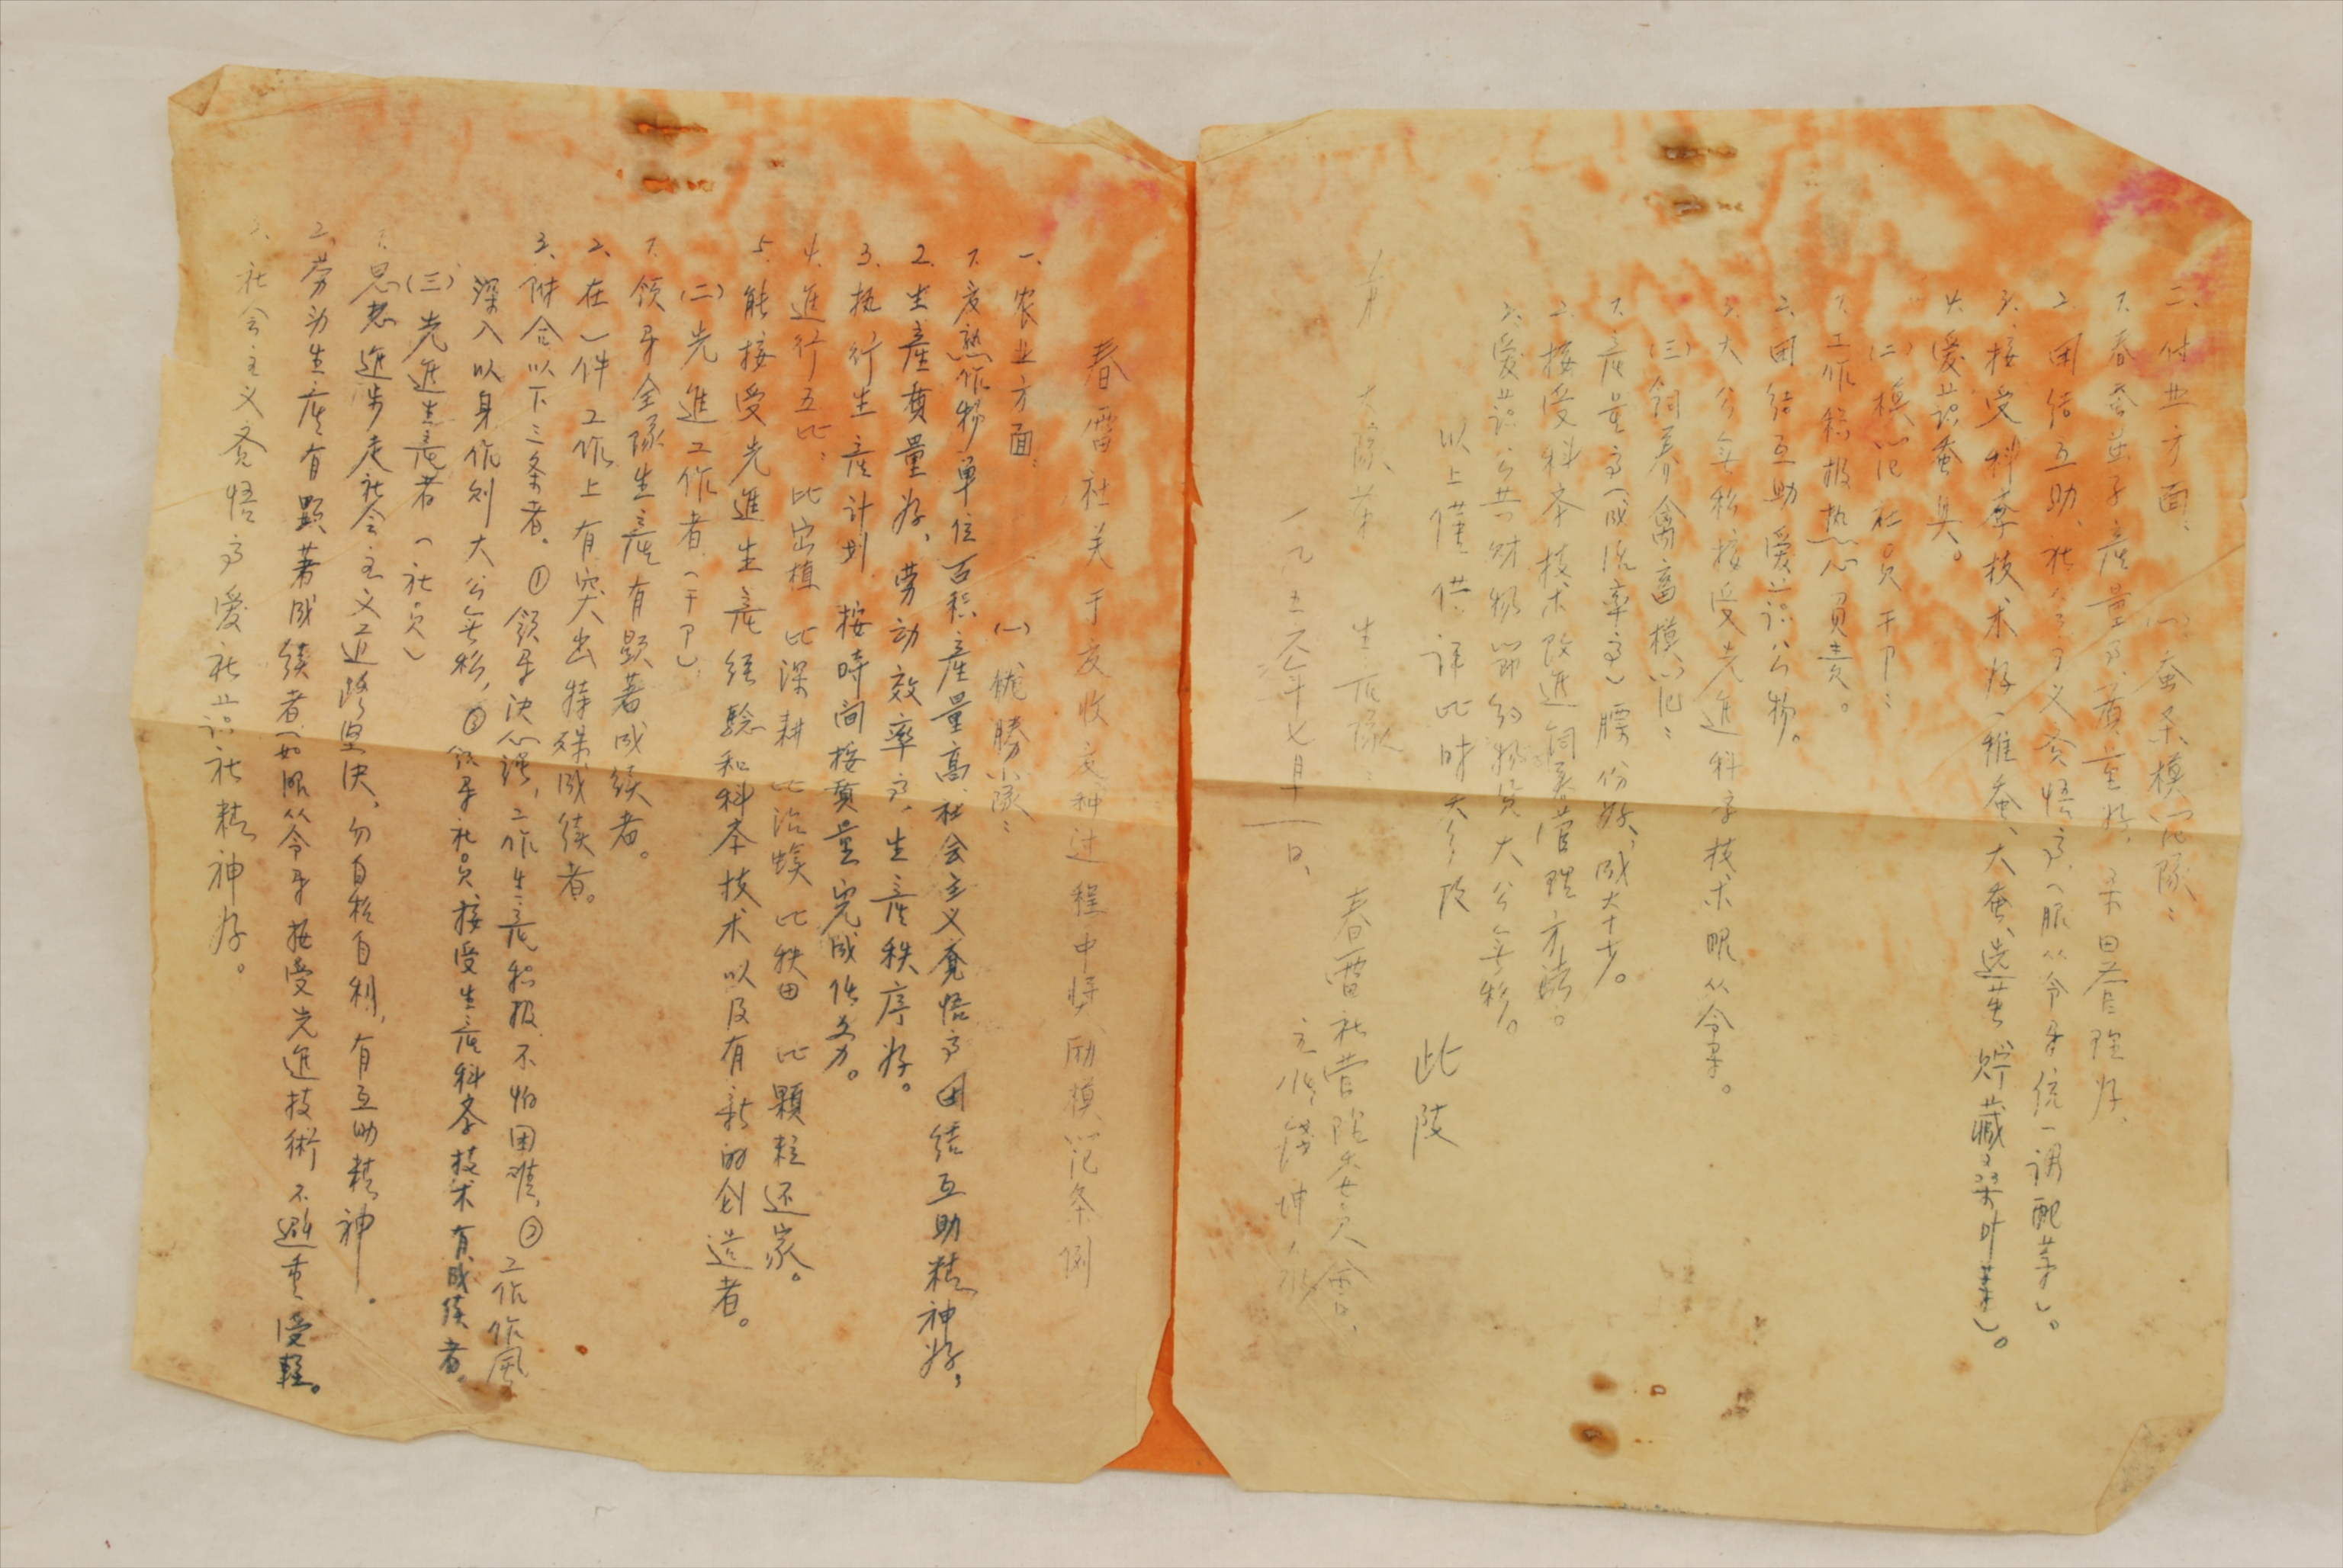 春雷社关于夏收夏种过程中奖励模范条例
一、农业方面： （一）优勝小隊：
1. 夏熟作物单位面积產量高，社会主义覚悟高，团结互助精神好，
2. 生產質量好，劳动效率高，生產秩序好。
3. 执行生產计划 按時间按質量完成任务。
4. 進行五比：比密植 比深耕 比治螟 比秧田 比顆粒还家。
5. 能接受先進生產经驗和科学技术以及有新的创造者。
（二）先進工作者（干卩）
1. 领导全隊生產有显著成绩者。
2. 在一件工作上有突出特殊成绩者。
3. 附合以下三条者。①领导决心强，工作生產积极，不怕困难，②工作作風
深入以身作则大公無私，③领导社员接受生產科学技术有成绩者。
（三）先進生產者（社员）
1. 思想進步走社会主义道路坚决，勿自私自利，有互助精神。
2. 劳动生產有顕著成绩者，如服从令导接受先進技術 不避重受輕。
3. 社会主义覚悟高爱社如社精神好。
二、付业方面： （一）蚕桑模范隊：
1. 春蚕蚕茧子產量高，質量好，桑田管理好，
2. 团结互助、社会主义覚悟高，（服从令导统一调配等）。
3. 接受科学技术好（稚蚕、大蚕、选茧、贮藏桑叶等）。
4. 愛护蚕具。
（二）模范社员干卩：
1. 工作积极热心負责。
2. 团结互助愛护公物。
3. 大公無私接受先進科学技术服从令导。
（三）飼养禽畜模范：
1. 產量高（成活率高）膘份好，成本少。
2. 接受科学技术改進飼養管理方法。
3. 愛护公共财物節约物资大公無私。
以上僅供评比时大多 及
此 致
第 大隊第 生产隊：
春雷社管理委员会
主任
一九五六年七月一日